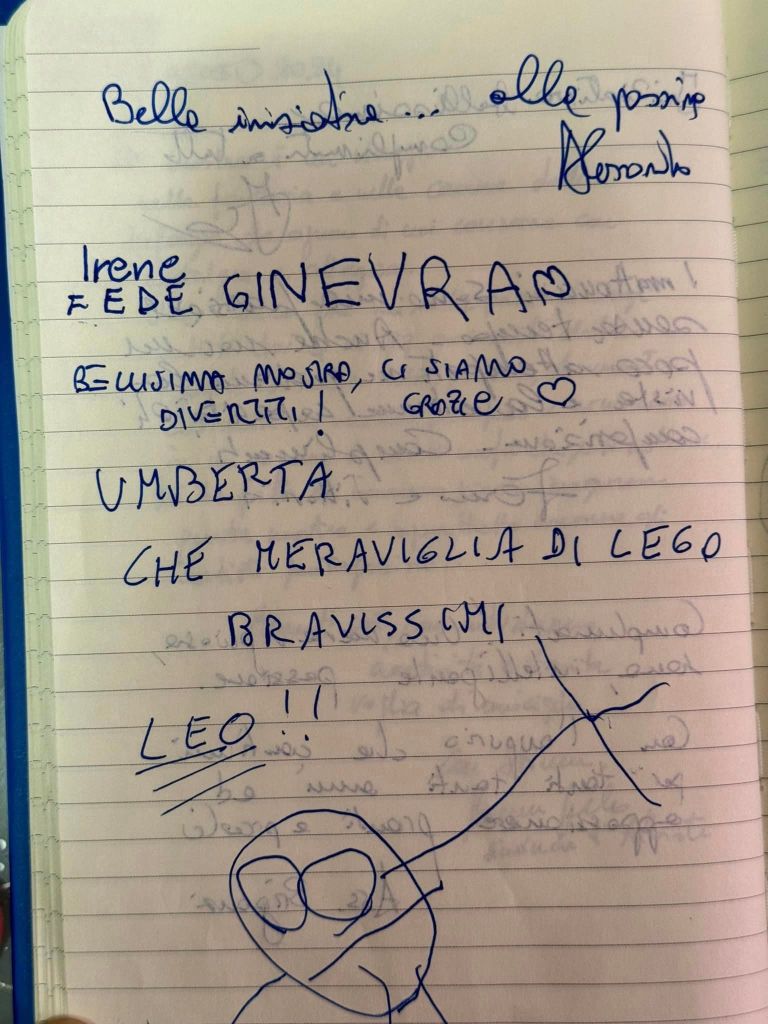 Bella iniziativa... alla prossima
Alessandro
Irene
FEDE GINEVRA
BELLISSIMA MOSTRA, CI SIAMO
DIVERTITI! GRAZIE
UMBERTA
CHE MERAVIGLIA DI LEGO
BRAVISSIMI
LEO!!